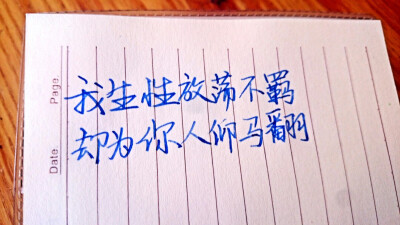 Page.
Date.
我生性放荡不羁
却为你人仰马翻